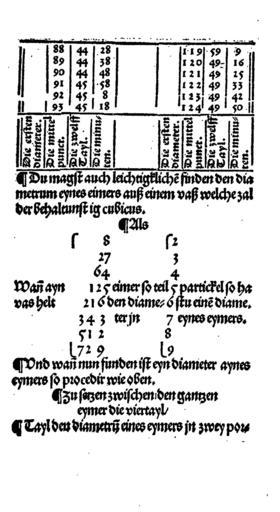 88 44 28 119 59 9
89 44 38 120 49 16
90 44 48 121 49 25
91 45 58 122 49 33
92 45 8 123 49 42
93 45 18 124 49 50
Die ersten diameter. Die mittel punct. Die zwelff Tayl. Die minuten. Die ersten diameter. Die mittel punct. Die zwelff Tayl. Die minuten.
¶ Du magst auch leichtigklichē finden den dia
metrum eynes eimers auß einem vaß welche zal
der behaltunst ig cubicus.
¶ Als
8 2
27 3
64 4
Wañ ayn 125 eimer so teil 5 partickel so ha
vas helt 216 den diame⸗ 6 stu einē diame.
343 ter jn 7 eynes eymers.
512 8
729 9
¶ Vnd wañ nun funden ist eyn diameter aynes
eymers so procedir wie oben.
¶ Zu setzen zwischen den gantzen
eymer die viertayl
¶ Tayl den diametrū eines eymers jn zwey pow